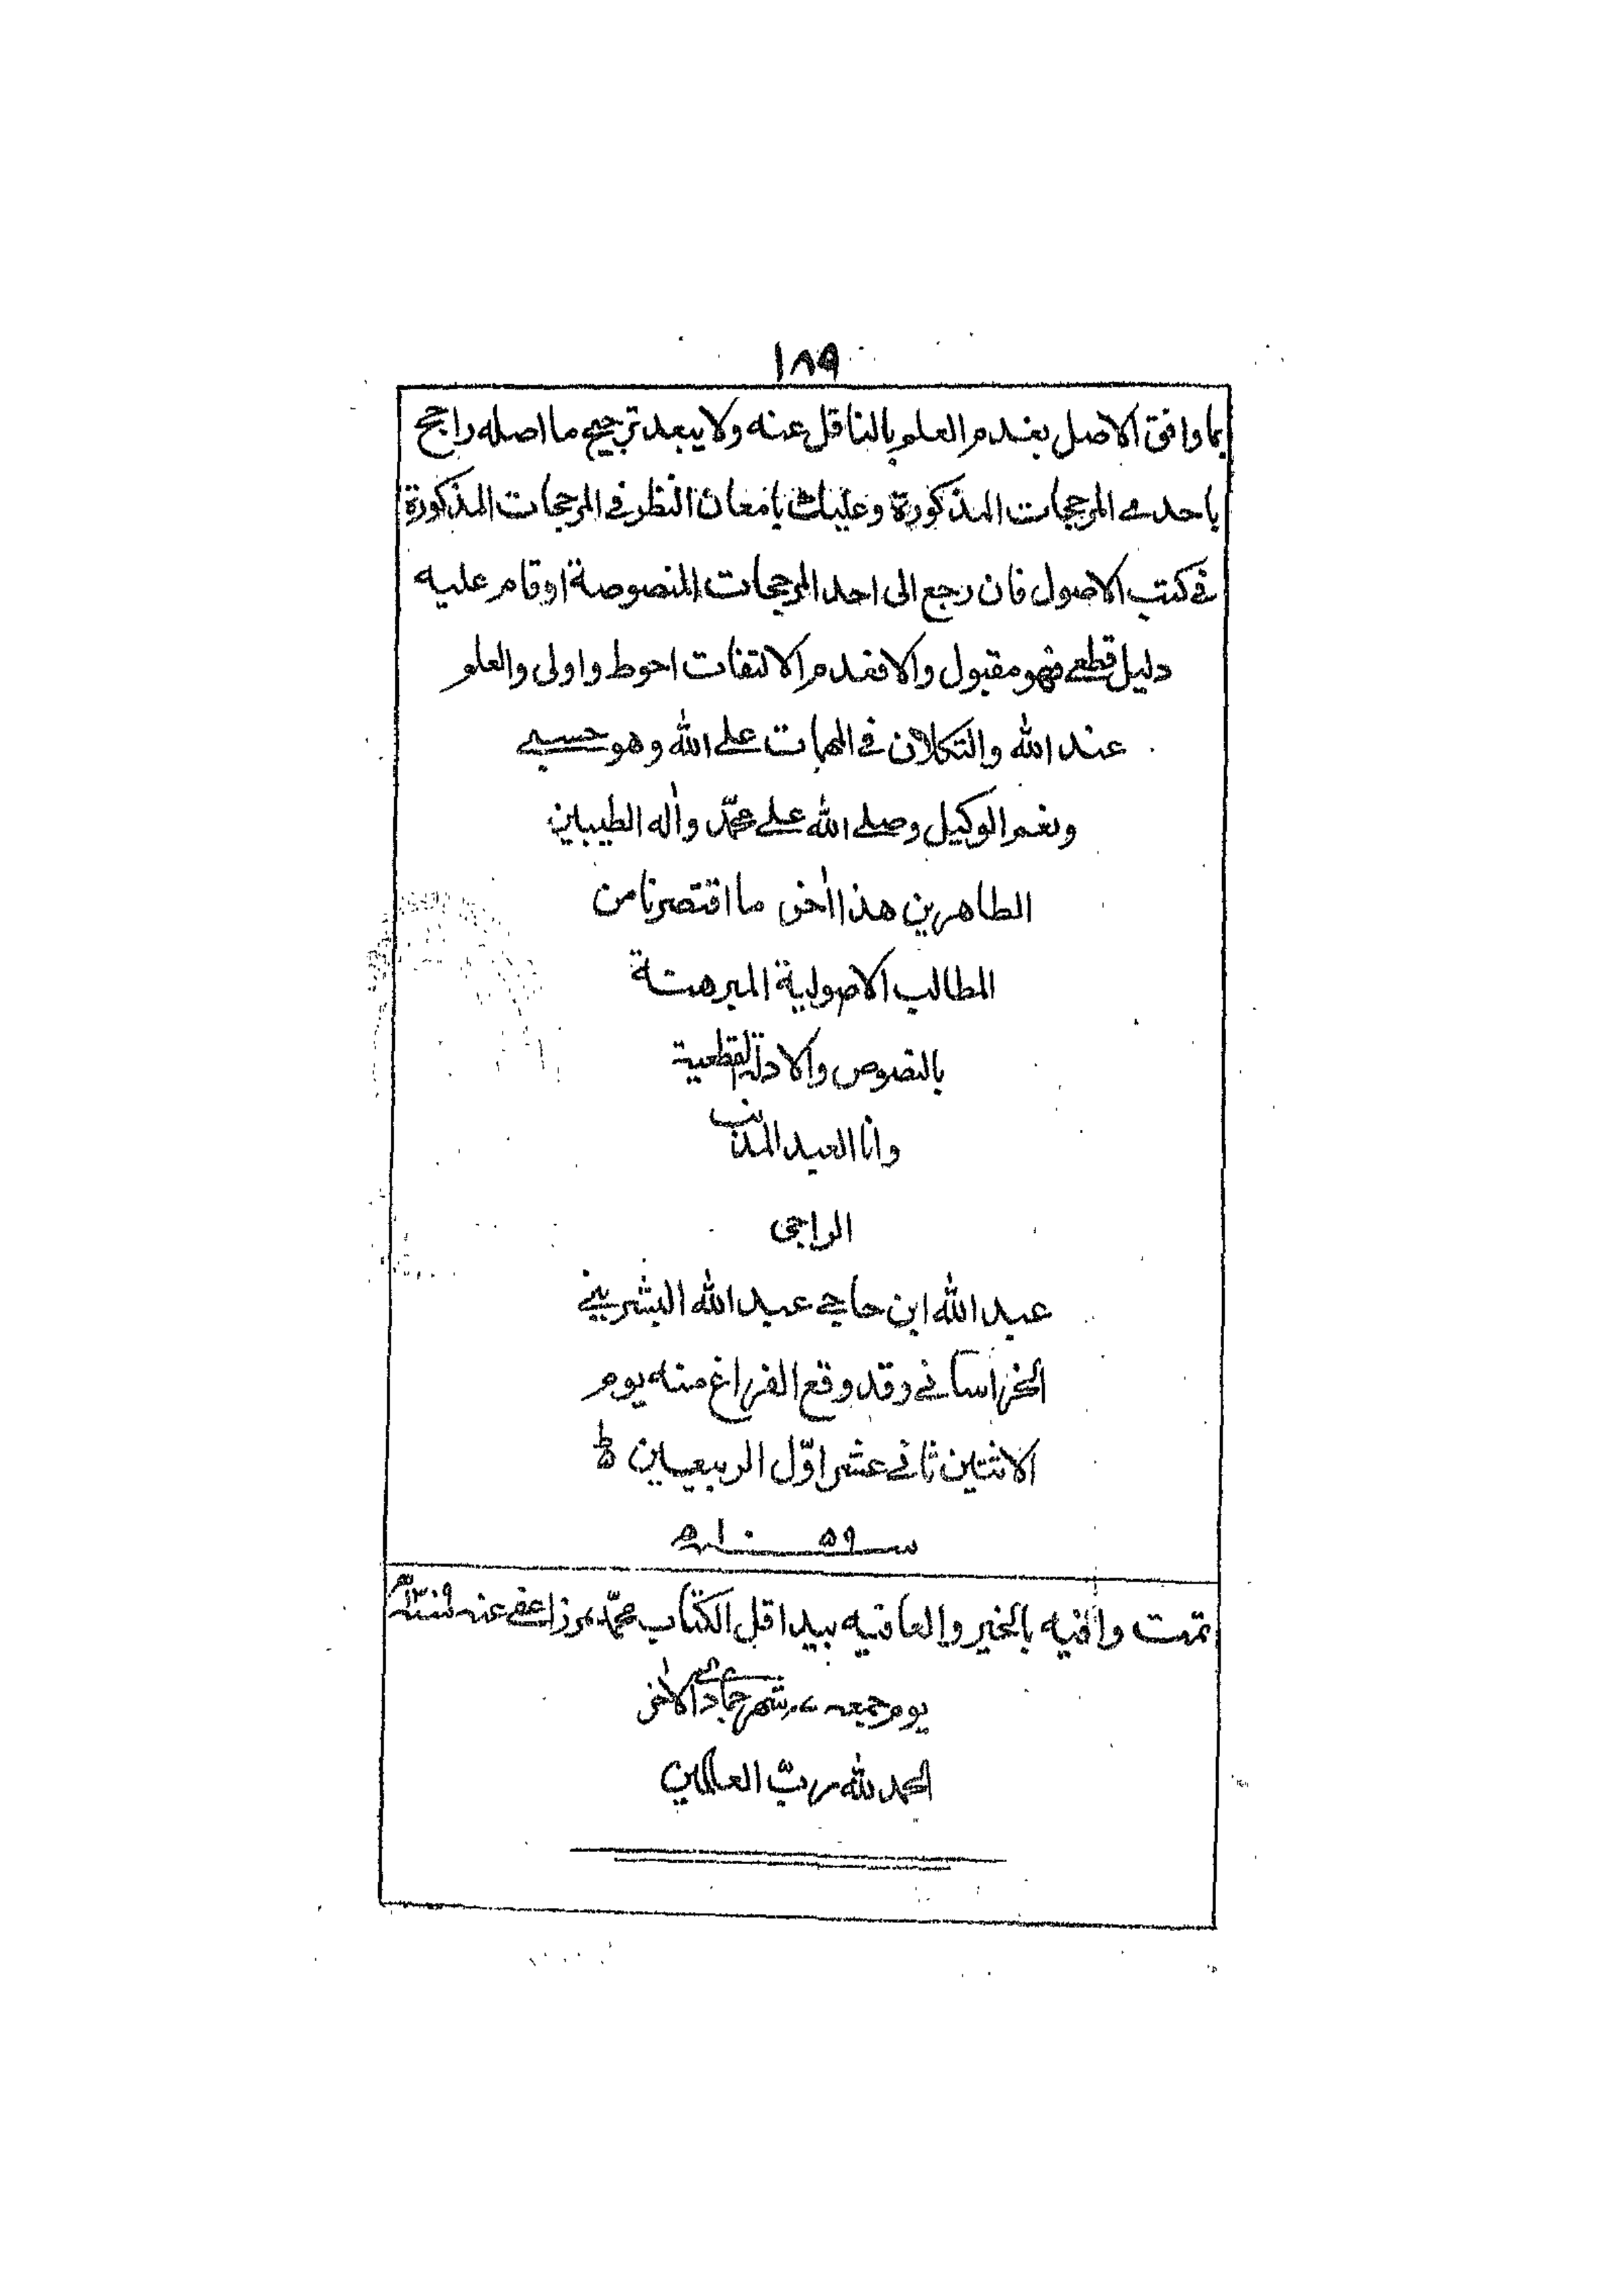 ١٨٩
بما وافق الاصل بعدم العلم بالناقل عنه ولا يبعد ترجيح ما اصله راجح
باحد من المرجحات المذكورة وعليك بامعان النظر في المرجحات المذكورة
في كتب الاصول فان رجع الى احد المرجحات المنصوصة او قام عليه
دليل قطعي فهو مقبول والا فعدم الالتفات احوط واولى والعلم
عند الله والتكلان في المهمات على الله وهو حسبي
ونعم الوكيل وصلى الله على محمّد واٰله الطيبين
الطاهرين هذا اٰخر ما اقتصرنا من
المطالب الاصولية المبرهنة
بالنصوص والادلة القطعية
وانا العبد المذنب
الراجى
عبد الله ابن حاجي عبد الله البشريني
الخراساني وقد وقع الفراغ منه يوم
الاثنين ثاني عشر اوّل الربيعين
سنه ١٠٥٩
تمت وافيه بالخير والعافيه بيد اقل الكتاب محمّد مرزا عفى عنه
يوم جمعه شهر جمادى الاٰخر
الحمد لله ربّ العالمين